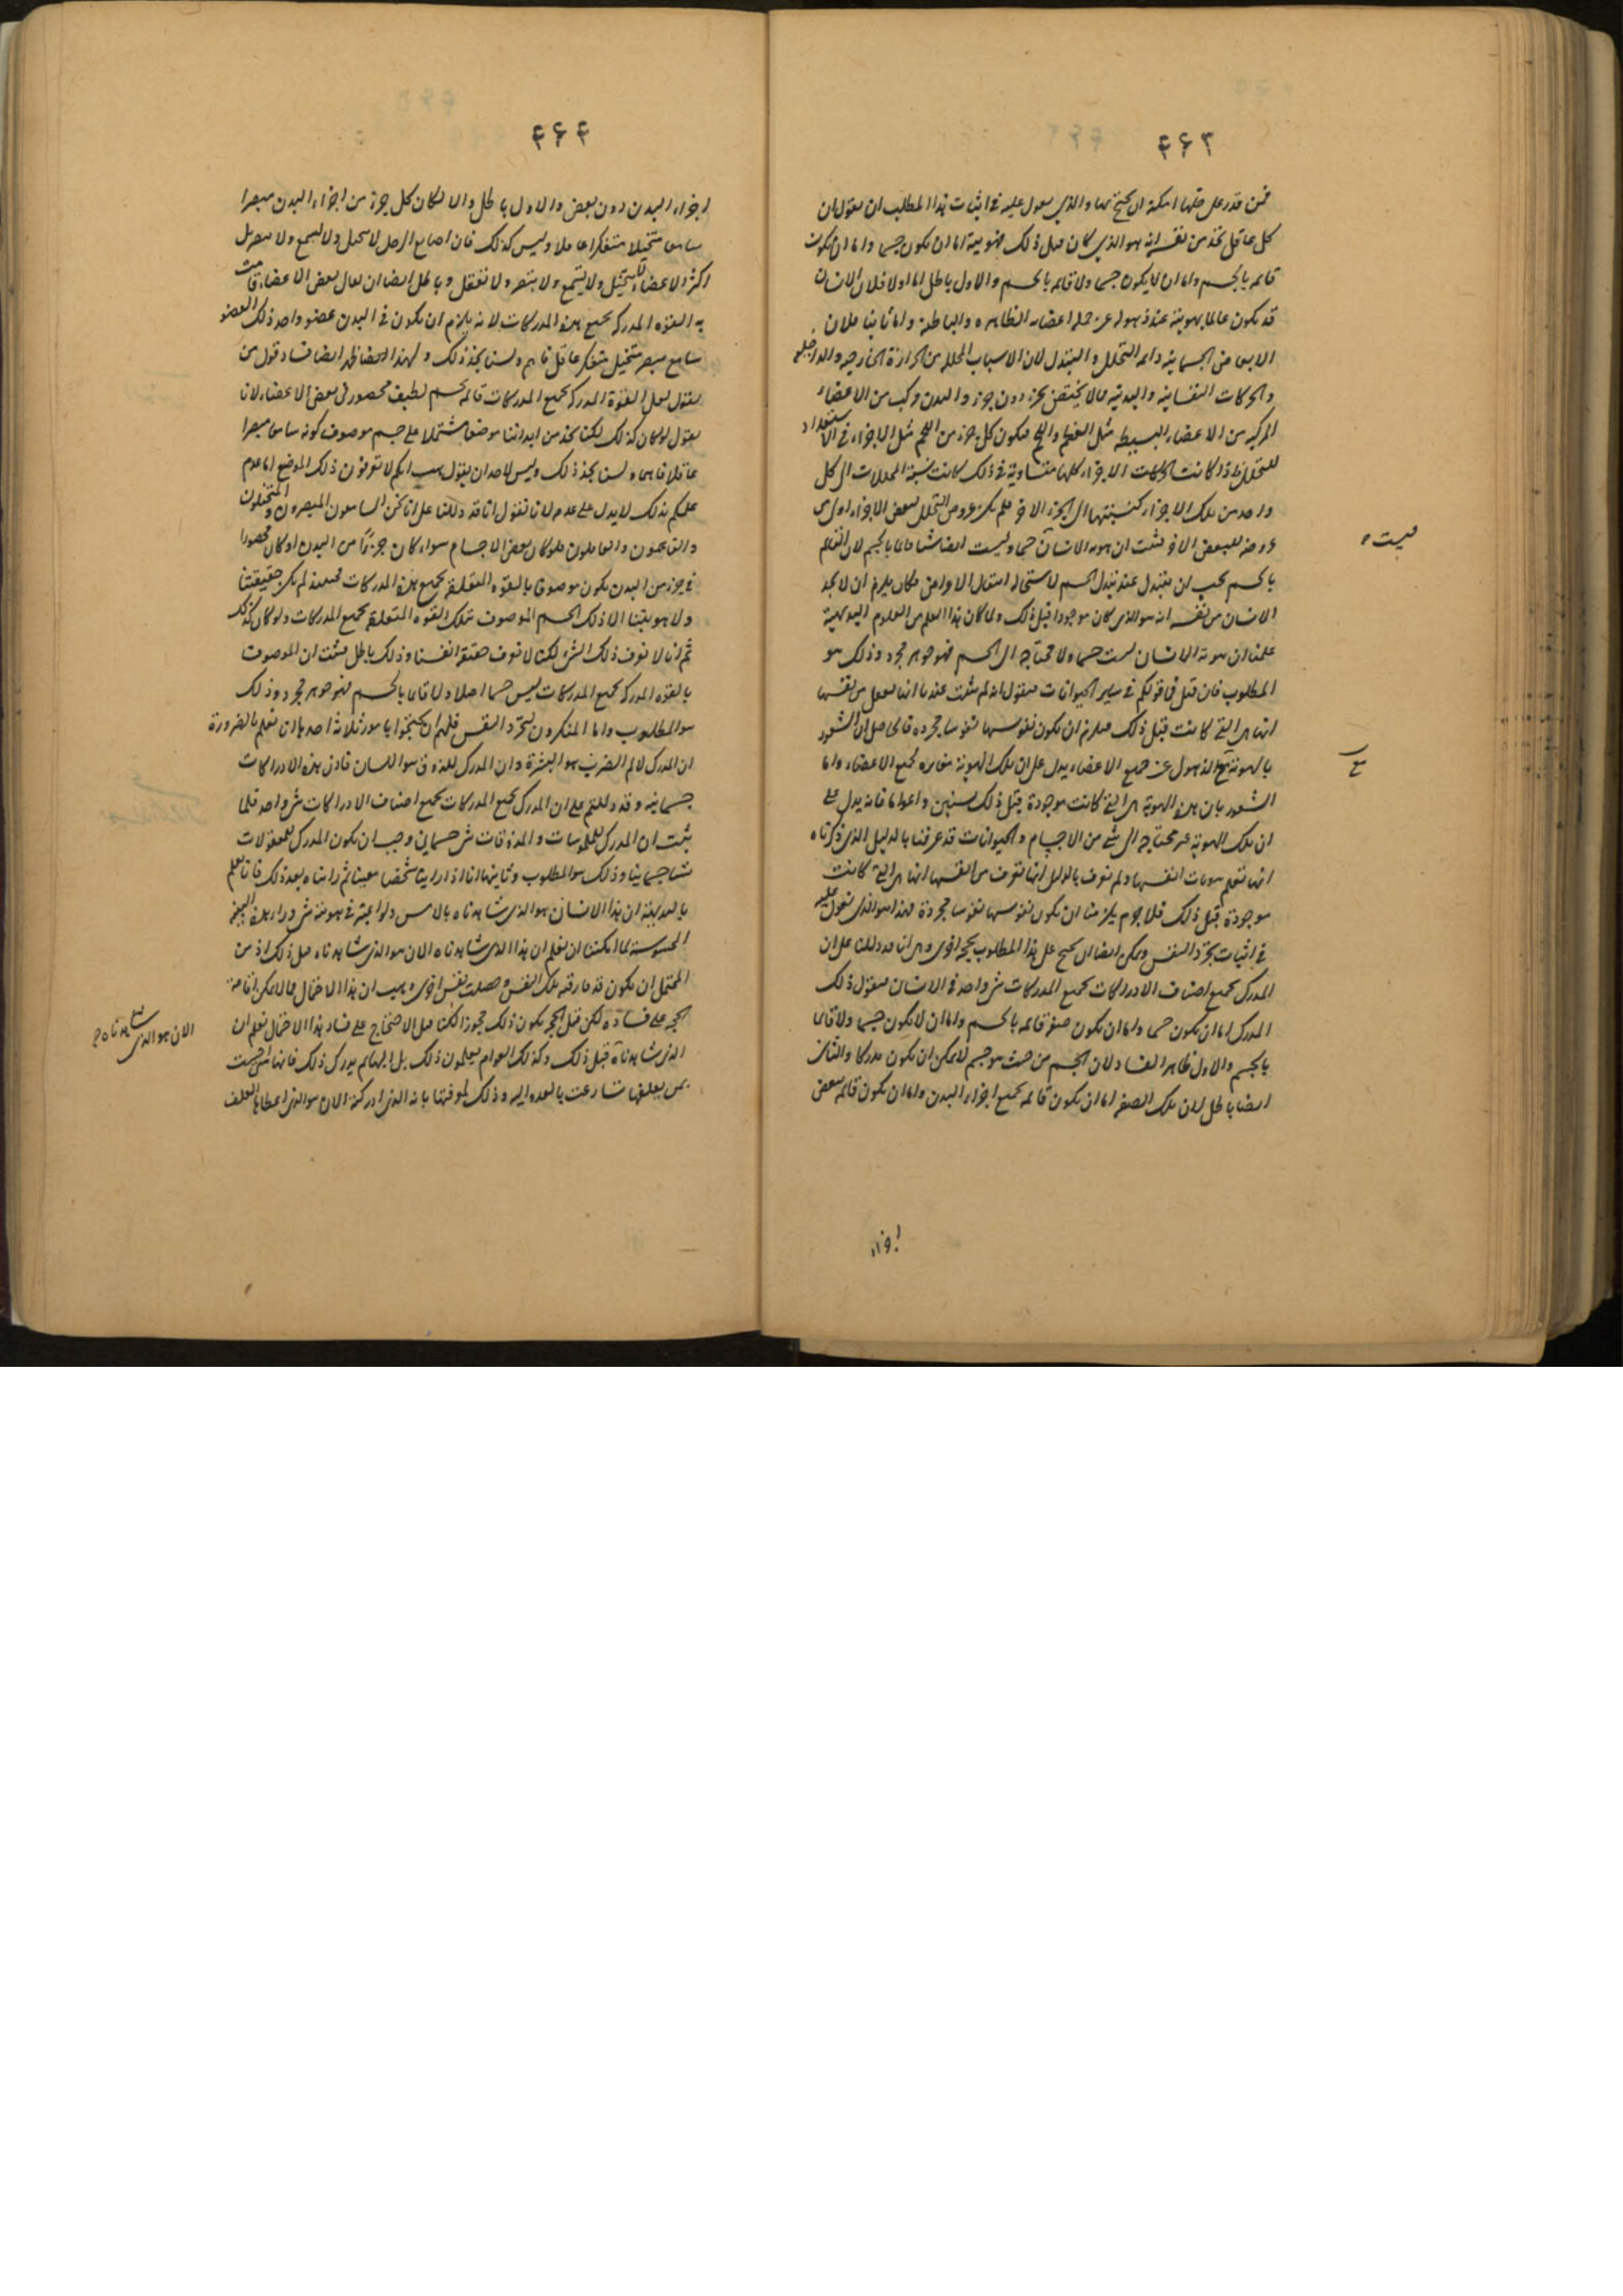 ۴۶۳
فمن قدر على حلها امكنه ان يحتج بها والذي نعول عليه في اثبات هذا المطلب ان نقول ان
كل عاقل يجد من نفسه انه هو الذي كان قبل ذلك فهويته اما ان يكون جسما واما ان يكون
قائمه بالجسم واما ان لا يكون جسما ولا قائمه بالجسم والاول باطل اما اولا فلان الانسان
قد يكون عالما بهويته عند ذهوله عن جمله اعضائه الظاهره والباطنة واما ثانيا فلان
الابعاض الجسمانيه دائمه التحلل والتبدل لان الاسباب المحلله من الحرارة الخارجيه والداخليه
والحركات النفسانيه والبدنيه مما لا يختص بجزء دون جزء والبدن مركب من الاعضاء
المركبه من الاعضاء البسيطه مثل العظم واللحم فيكون كل جزء من اللحم مثل الاجزاء في الاستعداد
للتحلل فاذا كانت الاجزاء كلها متساوية في ذلك كانت نسبة المحللات الى كل
واحد من تلك الاجزاء كنسبتها الى الجزء الاخر فلم يكن عروض التحلل لبعض الاجزاء اولى من
عروضه للبعض الاخر فثبت ان هويه الانسان جسما وليست ايضا شيئا قائما بالجسم لان القائم
ليست
بالجسم يجب ان يتبدل عند تبدل الجسم لاستحاله انتقال الاعراض فكان يلزم ان لا يجد
الانسان من نفسه انه هو الذي كان موجودا قبل ذلك ولما كان هذا العلم من العلوم البديهية
علمنا ان هوية الانسان ليست جسما ولا محتاجه الى الجسم فهو جوهر مجرد وذلك هو
المطلوب فان قيل فما قولكم في ساير الحيوانات فنقول انه لم يثبت عندنا انها تعقل من نفسها
انها هي التي كانت قبل ذلك فيلزم ان يكون نفوسها نفوسا مجرده فالحاصل ان الشعور
بالهوية مع الذهول عن جميع الاعضاء يدل على ان تلك الهوية مغايره لجميع الاعضاء واما
الشعور بان هذه الهوية هي التي كانت موجودة قبل ذلك بسنين واعوام فانه يدل على
ان تلك الهوية غير محتاجه الى شئ من الاجسام والحيوانات قد عرفنا بالدليل الذي ذكرناه
انها تعلم هويات انفسها ولم نعرف بالدليل انها تعرف من انفسها انها هي التي كانت
موجودة قبل ذلك فلا جرم يلزمنا ان يكون نفوسها نفوسا مجردة فهذا هو الذي نعول عليه
في اثبات تجرد النفس ويمكن ايضا ان نحتج على هذا المطلوب بحجه اخرى وهي انا قد دللنا على ان
المدرك بجميع اصناف الادراكات لجميع المدركات شئ واحد في الانسان فنقول ذلك
المدرك اما ان يكون جسما واما ان يكون صفه قائمه بالجسم واما ان لا يكون جسما ولا قائما
بالجسم والاول ظاهر الفساد لان الجسم من حيث هو جسم لا يمكن ان يكون مدركا والثاني
ايضا باطل لان تلك الصفه اما ان يكون قائمه بجميع اجزاء البدن واما ان يكون قائمه ببعض
اجزاء
۴۶۴
اجزاء البدن دون بعض والاول باطل والا لكان كل جزء من اجزاء البدن مبصرا
سامعا متخيلا متفكرا عاقلا وليس كذلك فان اصابع الرجل لا تتخيل ولا تسمع ولا تبصر بل
اكثر الاعضاء لا يتخيل ولا يستمع ولا يتبصر ولا تتعقل وباطل ايضا ان يقال بعض الاعضاء قامت
به القوه المدركه بجميع هذه المدركات لانه يلزم ان يكون في البدن عضو واحد ذلك العضو
سامع مبصر متخيل متفكر عاقل فاهم ولسنا نجد ذلك وبهذا ايضا ظهر ايضا فساد قول من
يقول لعل القوة المدركه بجميع المدركات قائمه بجسم لطيف محصور في بعض الاعضاء لانا
نقول لو كان كذلك لكنا نجد من ابداننا موضعا مشتملا على جسم موصوف بكونه سامعا مبصرا
عاقلا فاهما ولسنا نجد ذلك وليس لاحد ان يقول هب انكم لا تعرفون ذلك الموضع اما عدم
علمكم بذلك لا يدل على عدمه لانا نقول انا قد دللنا على انا نحن السامعون المبصرون والمتخيلون
والفاهمون والعاقلون فلو كان بعض الاجسام سواء كان جزءاً من البدن او كان محصورا
في جزء من البدن يكون موصوفا بالقوه المتعلقه بجميع هذه المدركات فحينئذ لم يكن حقيقتنا
ولا هويتنا الا ذلك الجسم الموصوف بتلك القوه المتعلقه بجميع المدركات ولو كان كذلك
ثم انا لا نعرف ذلك الشئ لكنا لا نعرف حقيقة انفسنا وذلك باطل فثبت ان الموصوف
بالقوه المدركه بجميع المدركات ليس جسما اصلا ولا قائما بالجسم فهو جوهر مجرد وذلك
هو المطلوب واما المنكرون لتجرد النفس فلهم ان يحتجوا بامور ثلاثه احدها انا نعلم بالضرورة
ان المدرك لالم الضرب هو البشرة وان المدرك للذوق هو اللسان فاذن هذه الادراكات
جسمانيه وقد دللتم على ان المدرك بجميع المدركات بجميع اصناف الادراكات شئ واحد فلما
ثبت ان المدرك للملموسات والمذوقات شئ جسماني وجب ان يكون المدرك للمعقولات
شيئا جسمانيا وذلك هو المطلوب وثانيها انا اذا راينا شخصا معينا ثم رايناه بعد ذلك فانا نعلم
بالبديهة ان هذا الانسان هو الذي شاهدناه بالامس ولو اعتبر في هويته شئ وراء هذه البنية
المحسوسة لما امكننا ان نعلم ان هذا الذي شاهدناه الان هو الذي شاهدناه قبل ذلك اذ من
المحتمل ان يكون قد فارقه تلك النفس وحصلت نفس اخرى وهب ان هذا الاحتمال مما لا يمكن اقامة
الحجه على فساده لكن قبل الحجه يكون ذلك مجوزا لكنا قبل الاحتجاج على فساد هذا الاحتمال نعلم ان
الان هو الذي شاهدناه
الذي شاهدناه قبل ذلك وكذلك العوام يعلمون ذلك بل البهائم يدرك ذلك فانها اذا احست
بمن يعلفها تسارعت بالعدو اليه وذلك لمعرفتها بانه الذي ادركته الان هو الذي اعطاها العلف